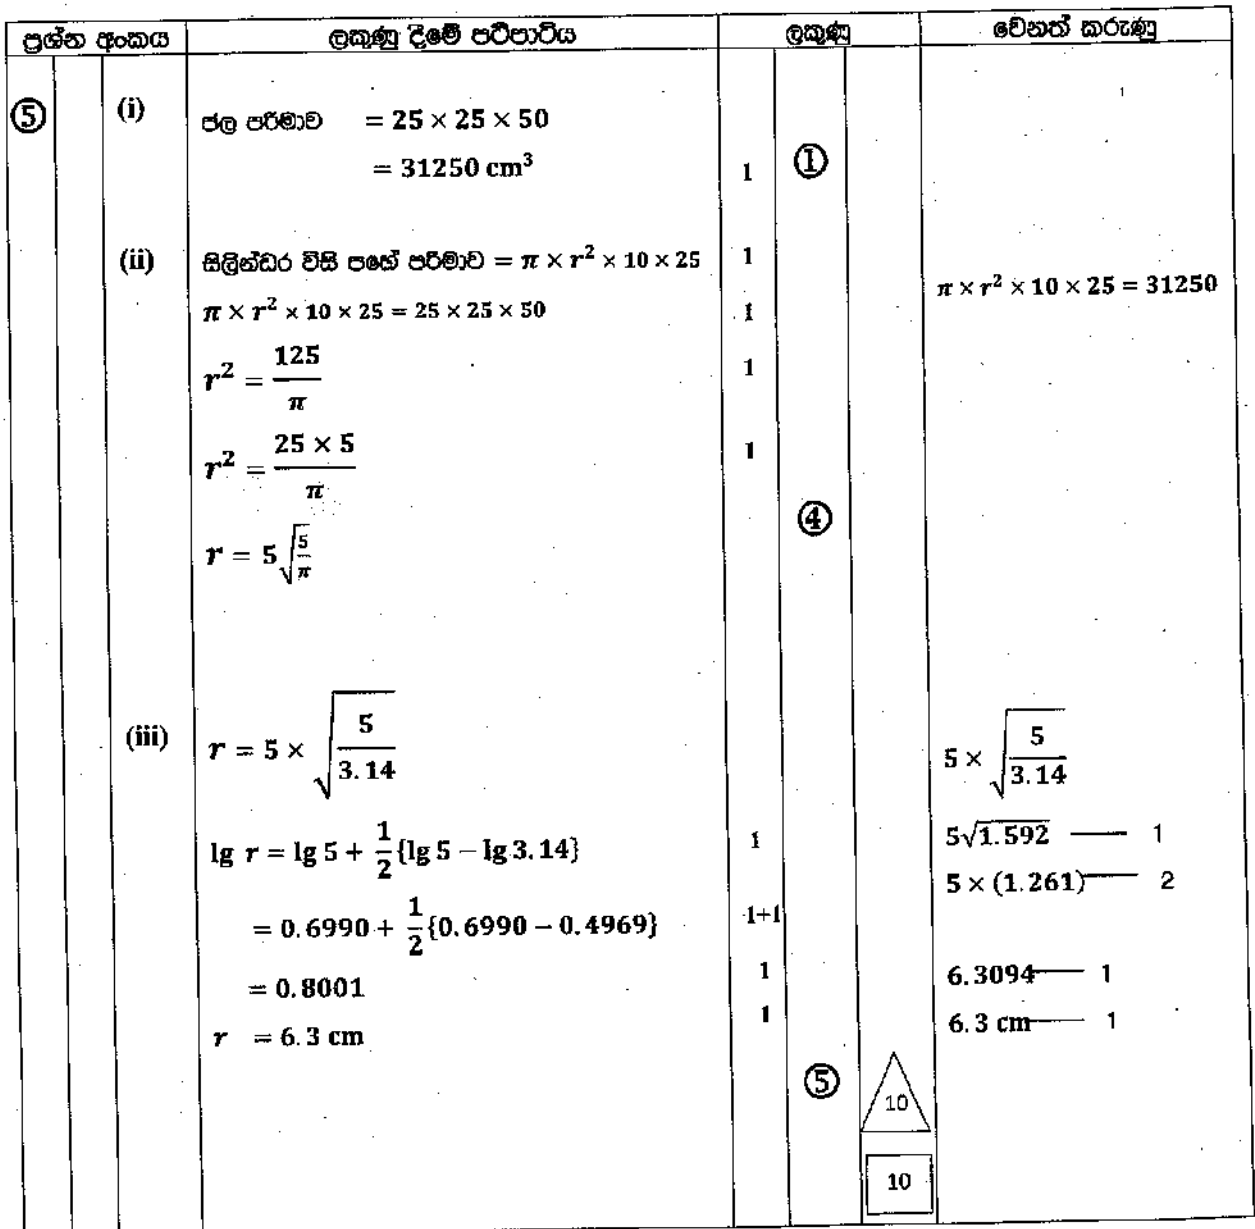 ප්‍රශ්න අංකය ලකුණු දීමේ පටිපාටිය ලකුණු වෙනත් කරුණු
⑤ (i) ජල පරිමාව = 25 × 25 × 50
= 31250 cm³ 1 ①
(ii) සිලින්ඩර විසි පහේ පරිමාව = π × r² × 10 × 25 1
π × r² × 10 × 25 = 31250
π × r² × 10 × 25 = 25 × 25 × 50 1
r² = 125/π 1
r² = (25 × 5)/π 1
④
r = 5√(5/π)
(iii) r = 5 × √(5/3.14) 5 × √(5/3.14)
lg r = lg 5 + 1/2 {lg 5 – lg 3.14} 1 5√1.592 — 1
5 × (1.261) — 2
= 0.6990 + 1/2 {0.6990 – 0.4969} 1+1
= 0.8001 1 6.3094 — 1
r = 6.3 cm 1 6.3 cm — 1
⑤ 10
10